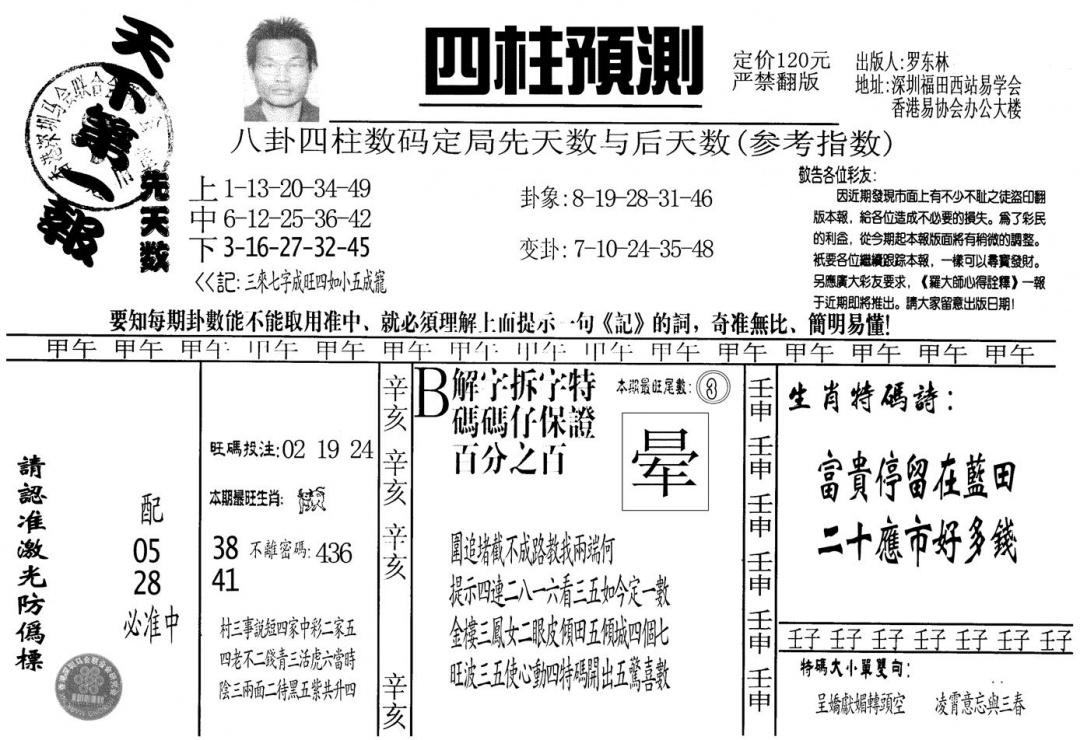 天下第一報
四柱預測
定价120元
严禁翻版
出版人:罗东林
地址:深圳福田西站易学会
香港易协会办公大楼
八卦四柱数码定局先天数与后天数(参考指数)
先天数
上1-13-20-34-49
中6-12-25-36-42
下3-16-27-32-45
<<記:三來七字成旺四如小五成寵
卦象:8-19-28-31-46
变卦:7-10-24-35-48
敬告各位彩友:
因近期發現市面上有不少不耻之徒盜印翻
版本報,給各位造成不必要的損失。爲了彩民
的利益,從今期起本報版面將有稍微的調整。
衹要各位繼續跟踪本報,一樣可以尋寶發財。
另應廣大彩友要求,《羅大師心得詮釋》一報
于近期即將推出。請大家留意出版日期!
要知每期卦數能不能取用准中、就必須理解上面提示一句《記》的詞,奇准無比、簡明易懂!
甲午 甲午 甲午 甲午 甲午 甲午 甲午 甲午 甲午 甲午 甲午 甲午 甲午 甲午 甲午
請認准激光防僞標
配
05
28
必准中
旺碼投注:02 19 24
本期最旺生肖:
38 不離密碼:436
41
村三事説短四家中彩二家五
四老不二錢青三活虎六當時
陰三兩面二待黑五紫共升四
辛亥 辛亥 辛亥 辛亥
B解字拆字特
碼碼仔保證
百分之百
本期最旺尾數:3
晕
圍追堵截不成路教我兩端何
提示四連二八一六看三五如今定一數
金樓三鳳女二眼皮傾田五傾城四個七
旺波三五使心動四特碼開出五驚喜數
壬申 壬申 壬申 壬申 壬申 壬申
生肖特碼詩:
富貴停留在藍田
二十應市好多錢
壬子 壬子 壬子 壬子 壬子 壬子 壬子
特碼大小單雙句:
呈嬌獻媚轉頭空 凌霄意忘與三春